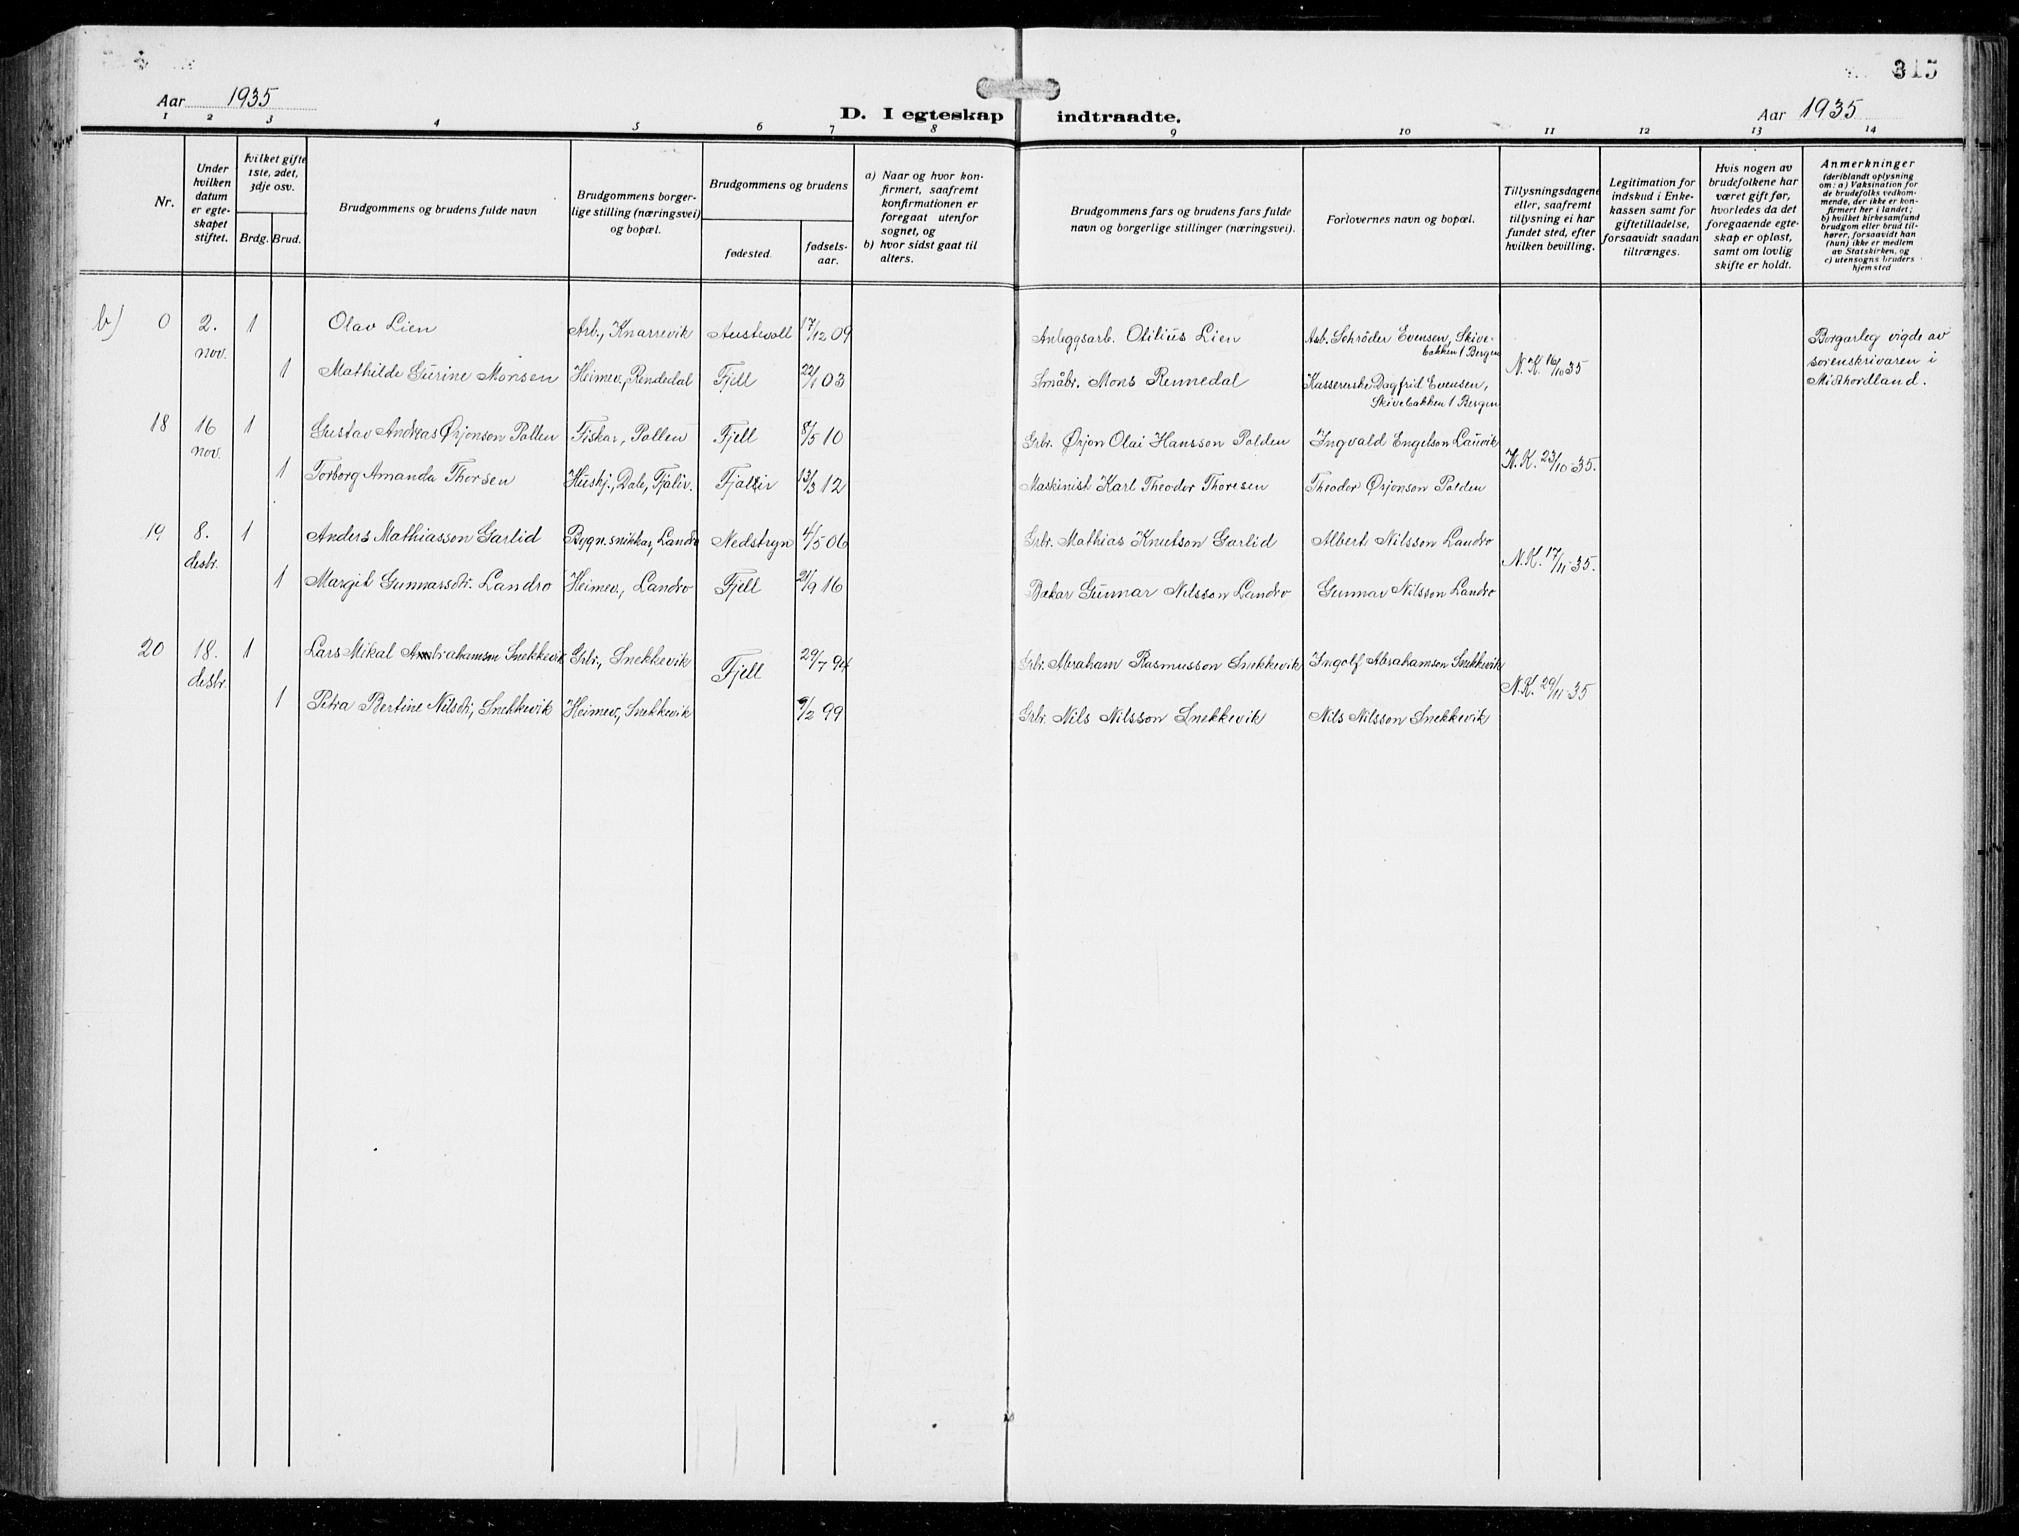 315
Aar 1935
D. I egteskap indtraadte.
Aar 1935
1 2 3 4 5 6 7 8 9 10 11 12 13 14
Nr.
Under hvilken datum er egte- skapet stiftet.
hvilket gifte 1ste, 2det, 3dje osv.
Brdg. Brud.
Brudgommens og brudens fulde navn
Brudgommens borger- lige stilling (næringsvei) og bopæl.
Brudgommens og brudens
fødested.
fødsels- aar.
a) Naar og hvor kon- firmert, saafremt konfirmationen er foregaat utenfor sognet, og
b) hvor sidst gaat til alters.
Brudgommens fars og brudens fars fulde navn og borgerlige stillinger (næringsvei).
Forlovernes navn og bopæl.
Tillysningsdagene eller, saafremt tillysning ei har fundet sted, efter hvilken bevilling.
Legitimation for indskud i Enke- kassen samt for giftetilladelse, forsaavidt saadan tiltrænges.
Hvis nogen av brudefolkene har været gift før, hvorledes da det foregaaende egte- skap er opløst, samt om lovlig skifte er holdt.
Anmerkninger (deriblandt oplysning om: a) Vaksination for de brudefolks vedkom- mende, der ikke er kon- firmert her i landet; b) hvilket kirkesamfund brudgom eller brud til- hører, forsaavidt han (hun) ikke er medlem av Statskirken, og c) utensogns bruders hjemsted
b) 0 2. nov. 1 Olav Lien Arb., Knarrevik Austevoll 17/12 09 Anleggsarb. Otilius Lien Arb. Schröder Evensen, Skive- bakken 1 Bergen N.K. 16/10 35 Borgarleg vigde av sorenskrivaren i Midthordland.
1 Mathilde Gurine Monsen Heimev., Rendedal Fjell 22/1 03 Småbr. Mons Rennedal Kassererske Dagfrid Evensen, Skivebakken 1 Bergen
18 16 nov. 1 Gustav Andreas Ørjonson Pollen Fiskar, Pollen Fjell 8/5 10 Grbr. Ørjon Olai Hansson Polden Ingvald Engelson Lauvik N.K. 23/10-35.
1 Torborg Amanda Thorsen Huskj., Dale, Fjaler. Fjaler 13/3 12 Maskinist Karl Theodor Thoresen Theodor Ørjonson Polden
19 8. desbr. 1 Anders Mathiasson Garlid Bygn.snikkar, Landro Nedstryn 4/5 06 Grbr. Mathias Knutson Garlid Albert Nilsson Landro N.K. 17/11-35.
1 Margit Gunnarsdtr. Landro Heimev., Landro Fjell 21/9 16 Bakar Gunnar Nilsson Landro Gunnar Nilsson Landro
20 18. desbr. 1 Lars Mikal Abrahamson Snekkevik Grbr., Snekkevik Fjell 29/7 94 Grbr. Abraham Rasmusson Snekkevik Ingolf Abrahamson Snekkevik N.K. 29/11-35
1 Petra Bertine Nilsdtr. Snekkevik Heimev., Snekkevik 9/2 99 Grbr. Nils Nilsson Snekkevik Nils Nilsson Snekkevik